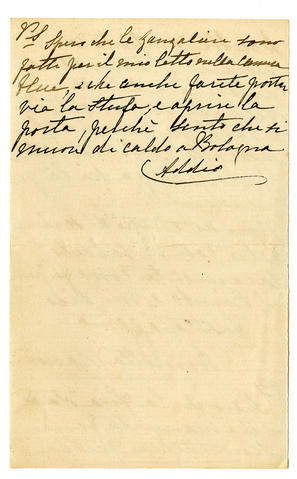 PS Spero che le zanzaliere sono
fatte per il mio letto nella camera
blue, e che anche farete portar
via la stufa, e aprire la
porta, perchè sento che si
muore di caldo a Bologna
Addio